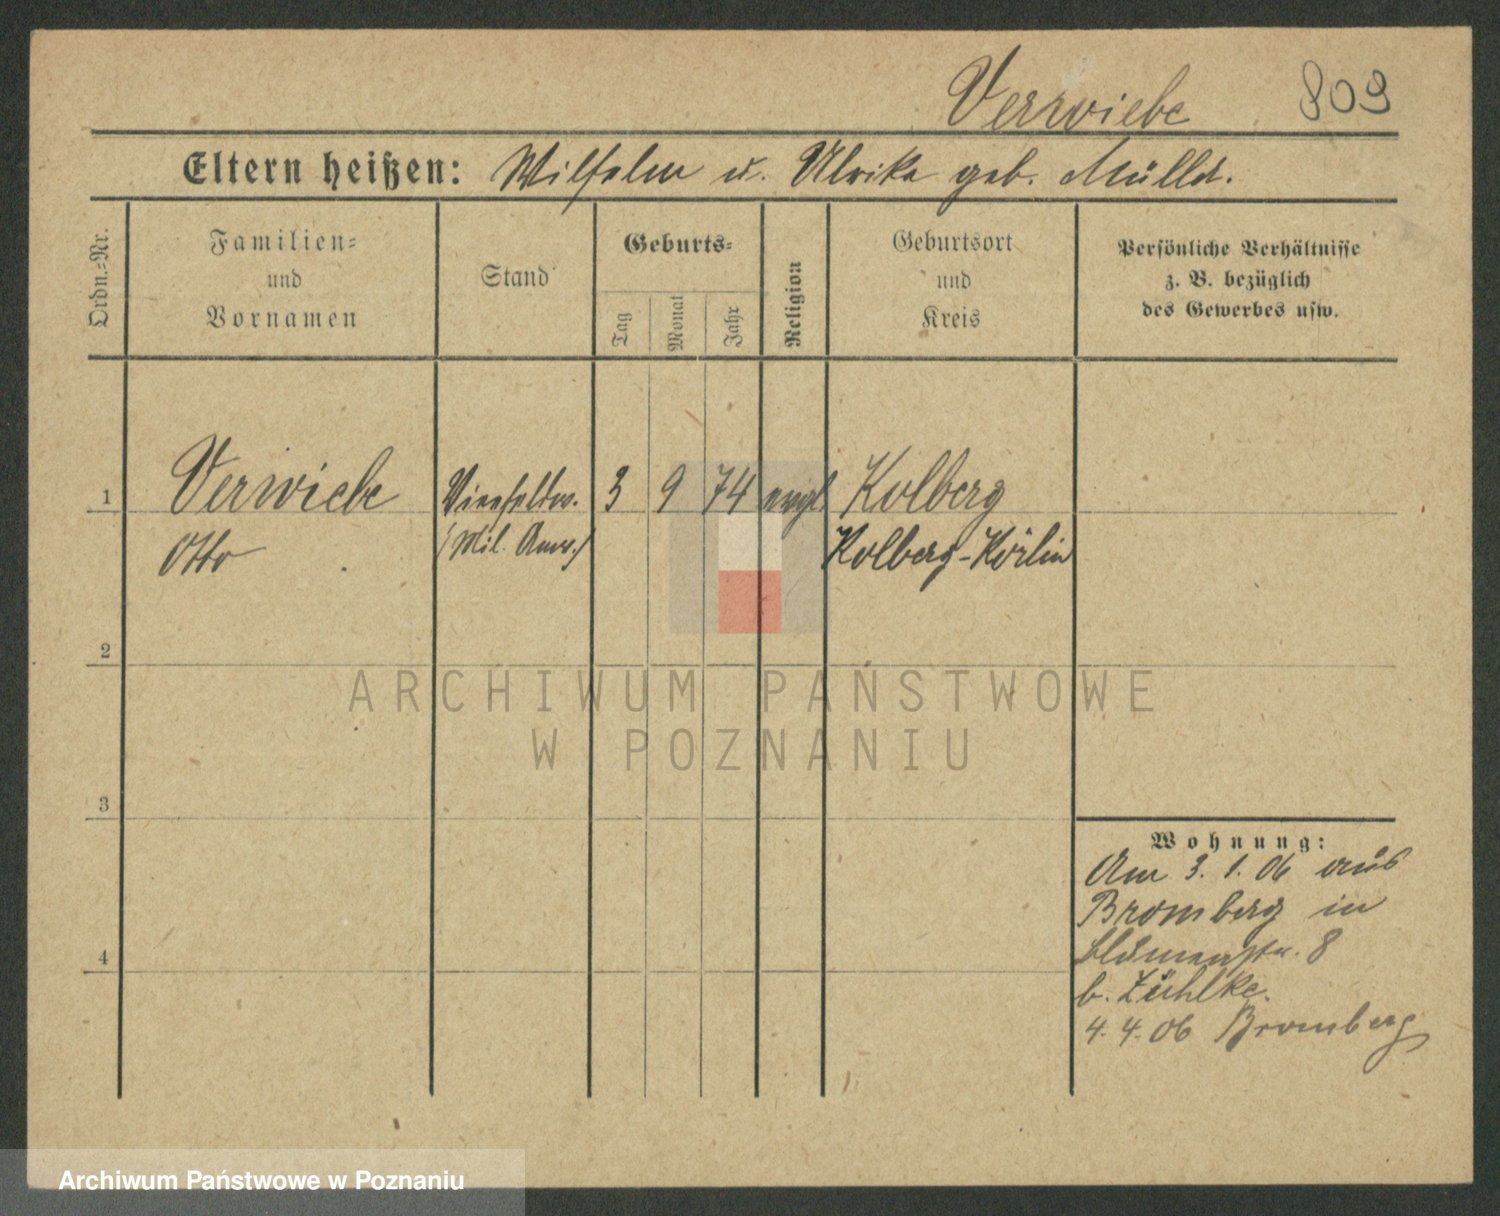 Verwiebe 809
Eltern heißen: Wilhelm u. Ulrike geb.
Ordn.-Nr.
Familien-
und
Vornamen
Stand
Geburts-
Tag
Monat
Jahr
Religion
Geburtsort
und
Kreis
Persönliche Verhältnisse
z. B. bezüglich
des Gewerbes usw.
1 Verwiebe Vizefeldw. 3 9 74 evgl. Kolberg
Otto (Mil. Anw.) Kolberg-Körlin
2
3
4
Wohnung:
Am 3. 1. 06 aus
Bromberg in
Blumenstr. 8
b. Zühlke.
4. 4. 06 Bromberg
ARCHIWUM PAŃSTWOWE
W POZNANIU
Archiwum Państwowe w Poznaniu